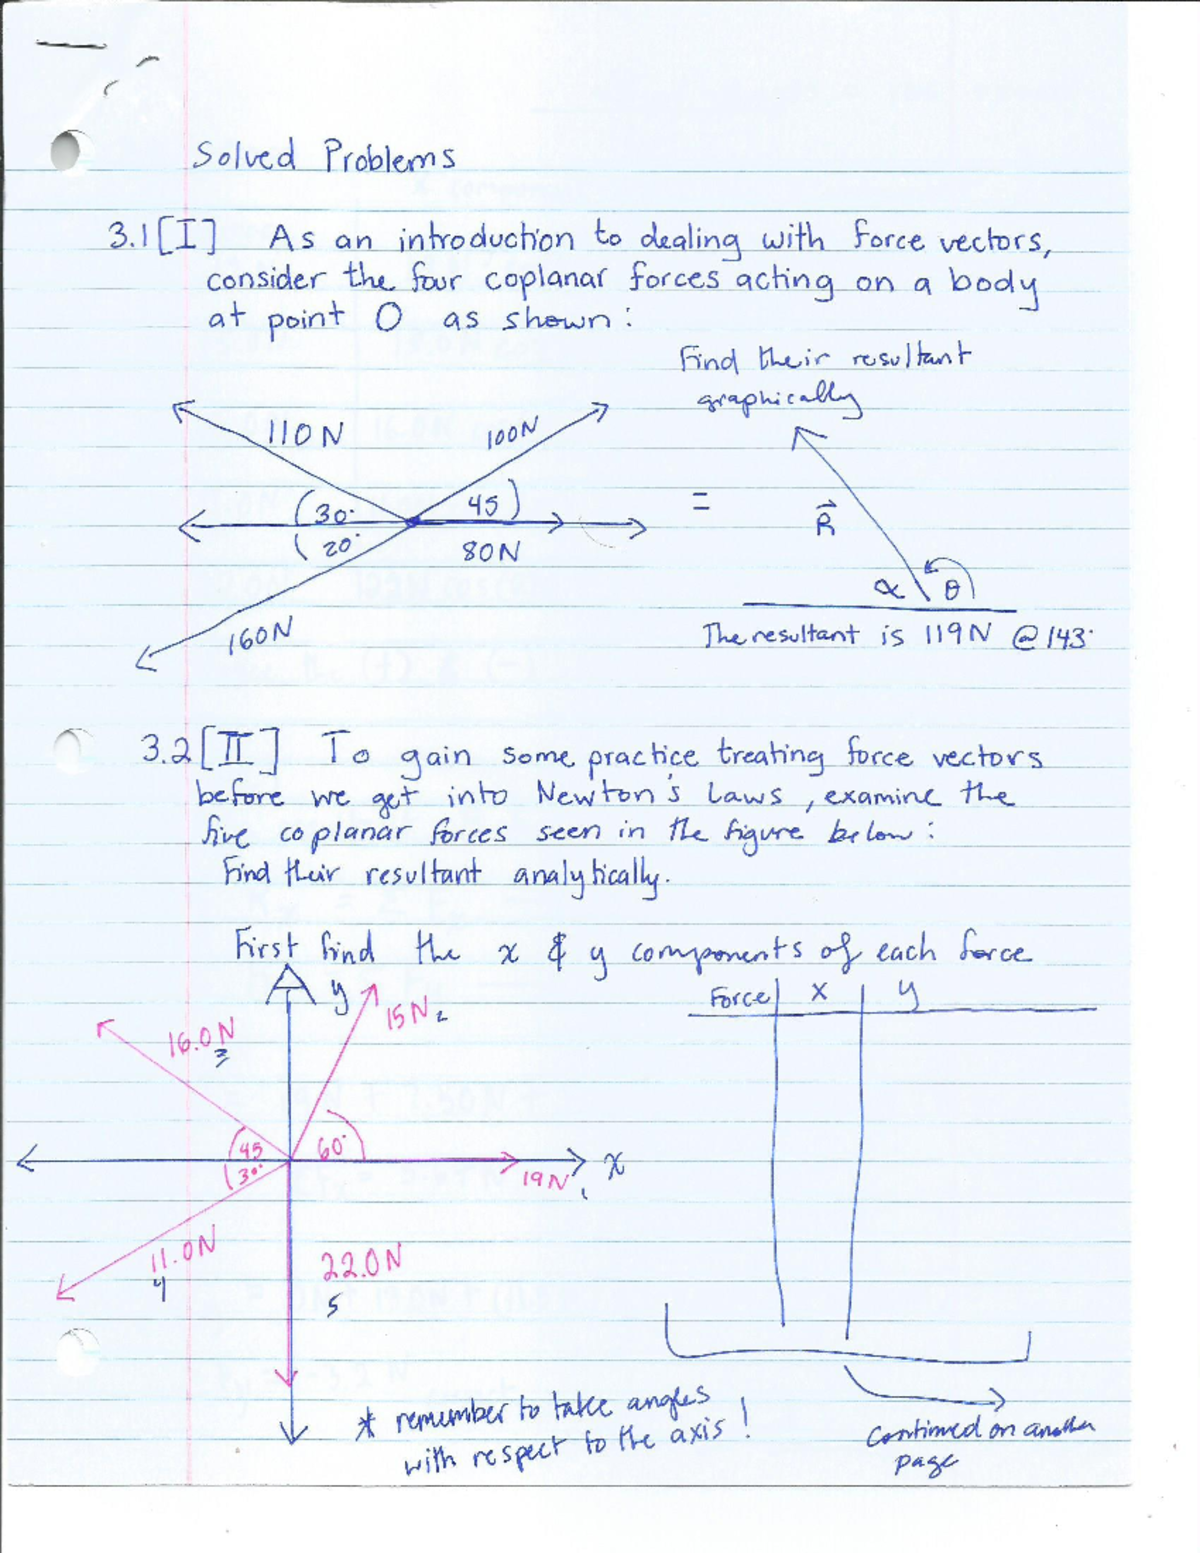 Solved Problems
3.1 [I] As an introduction to dealing with force vectors,
consider the four coplanar forces acting on a body
at point O as shown:
Find their resultant
graphically
110N
100N
30°
45
20°
80N
160N
=
R
α
θ
The resultant is 119N @ 143°
3.2 [II] To gain some practice treating force vectors
before we get into Newton's Laws, examine the
five coplanar forces seen in the figure below:
Find their resultant analytically.
First find the x & y components of each force
Force x y
y
15N 2
16.0N
3
45
60°
30°
x
19N 1
11.0N
4
22.0N
5
* remember to take angles
with respect to the axis!
Continued on another
page